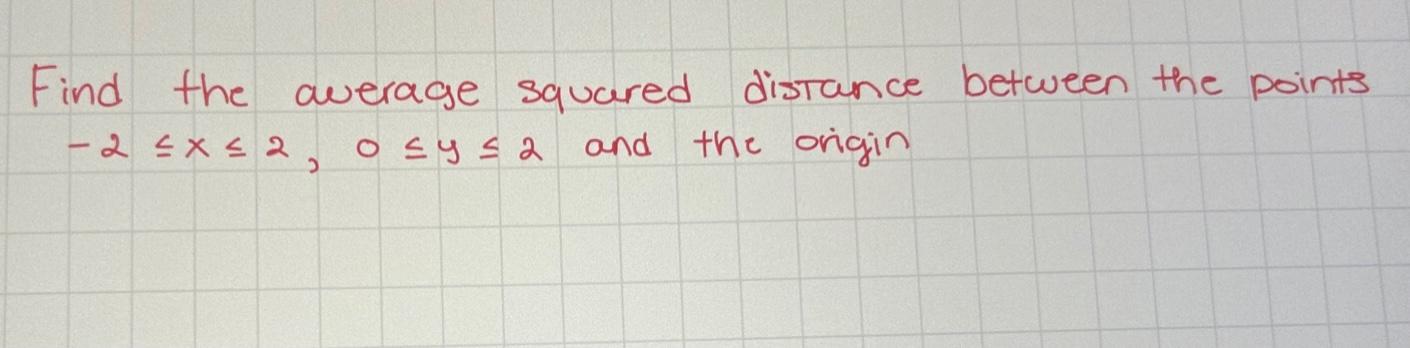 Find the average squared distance between the points
-2 ≤ x ≤ 2, 0 ≤ y ≤ 2 and the origin